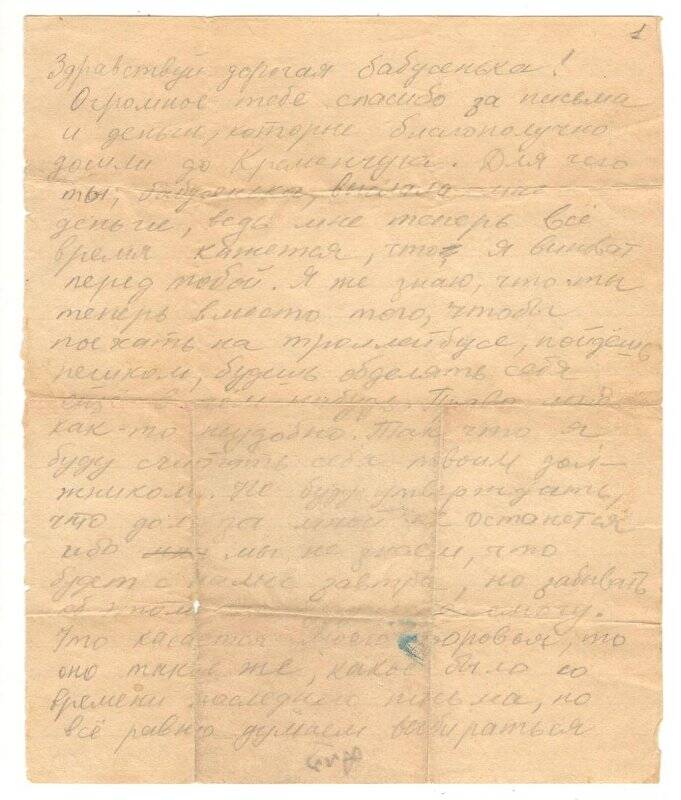 1
Здравствуй дорогая бабусенька!
Огромное тебе спасибо за письма
и деньги, которые благополучно
дошли до Кременчука. Для чего
ты, бабусенька, выслала мне
деньги, ведь мне теперь всё
время кажется, что я виноват
перед тобой. Я же знаю, что ты
теперь вместо того, чтобы
поехать на троллейбусе, пойдёшь
пешком, будешь обделять себя
ещё в чём нибудь. Право мне
как-то неудобно. Так что я
буду считать себя твоим дол-
жником. Не буду утверждать,
что долг за мной не останется
ибо мы не знаем, что
будет с нами завтра, но забывать
об этом смогу.
Что касается моего здоровья, то
оно такое же, какое было со
времени последнего письма, но
всё равно думаем выбираться